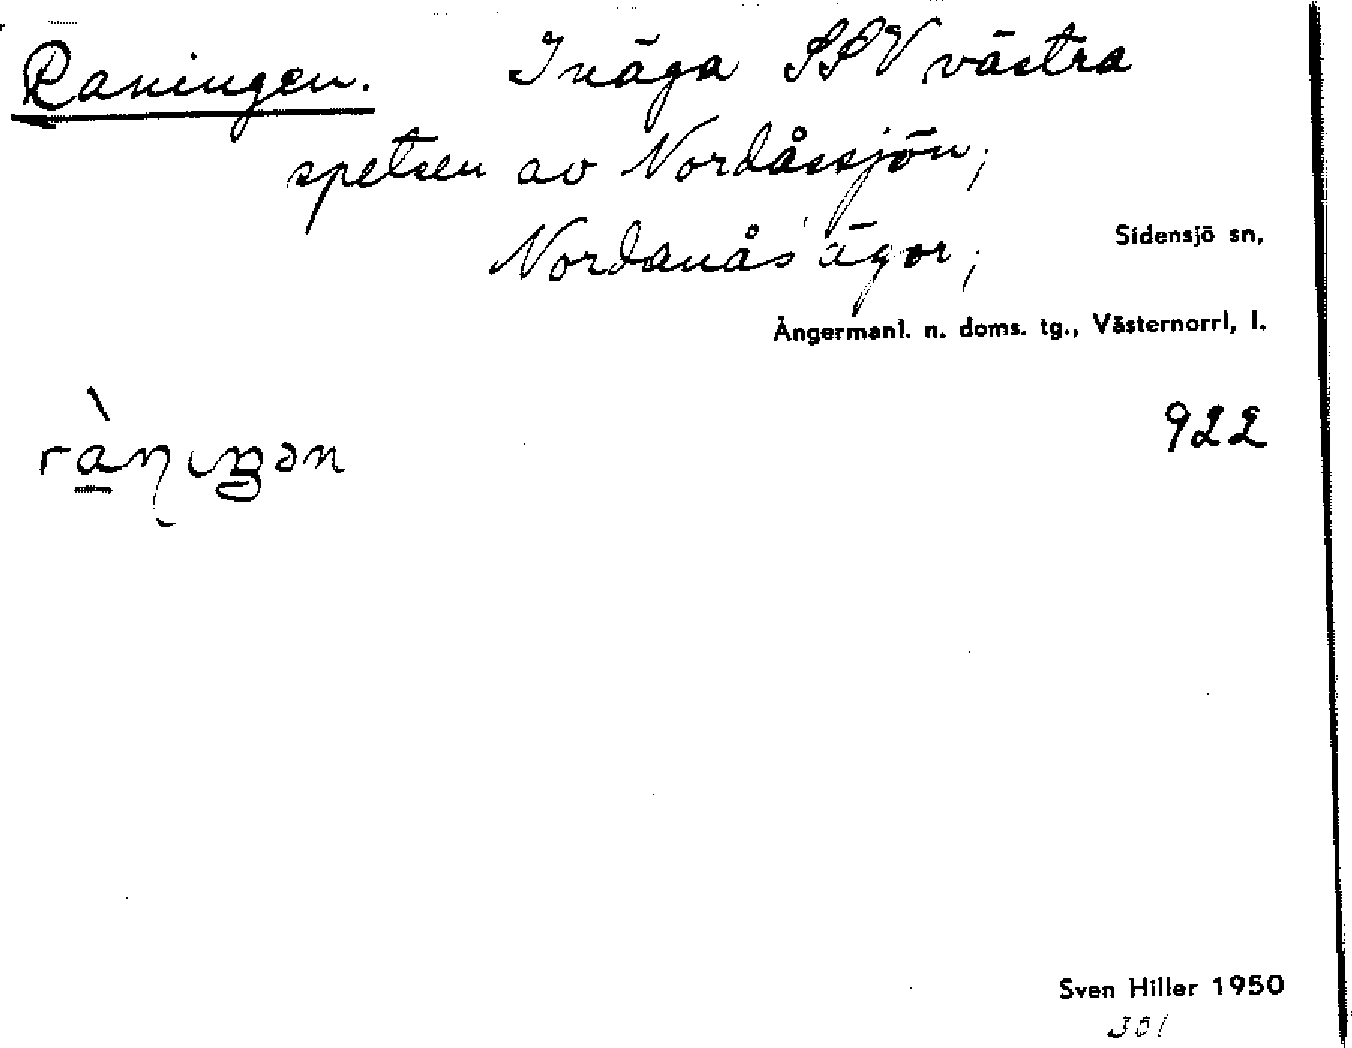 Raningen. Inäga SSV västra
spetsen av Nordåssjön;
Nordanås ägor;
Sidensjö sn,
Ångermanl. n. doms. tg., Västernorrl, l.
922
Sven Hiller 1950
301